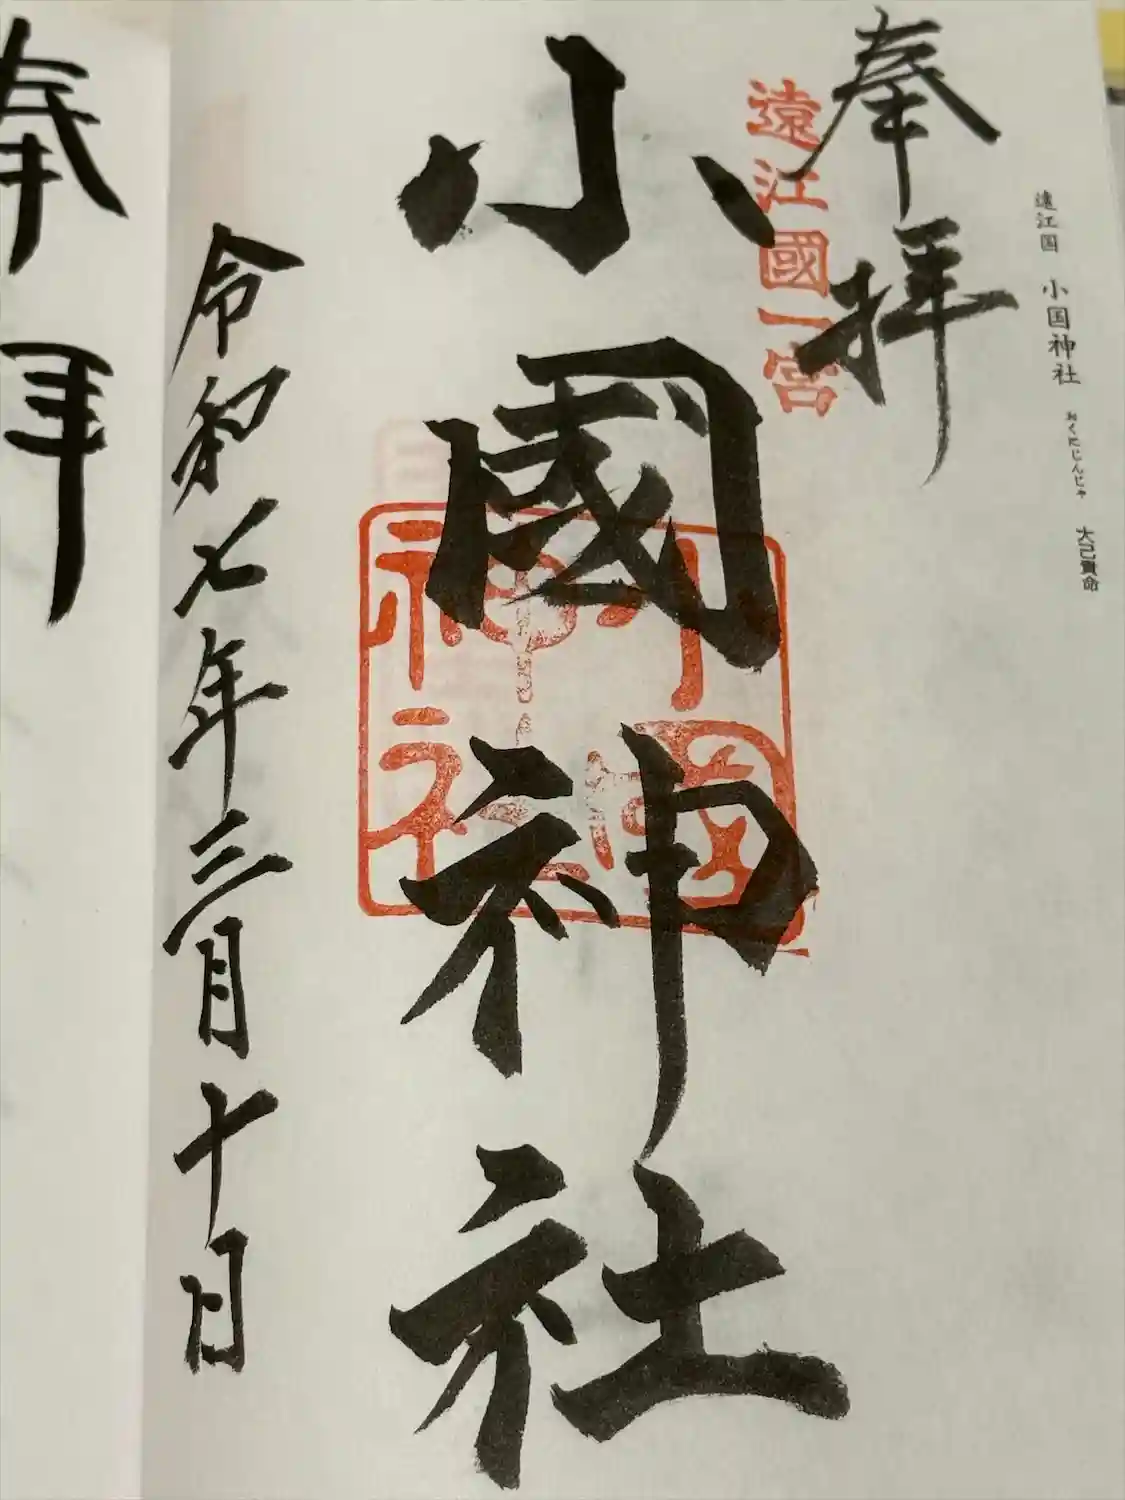 遠江国 小国神社 おくにじんじゃ 大己貴命
奉拝
遠江國一宮
小國神社
小國神社
令和七年三月十日
奉拝